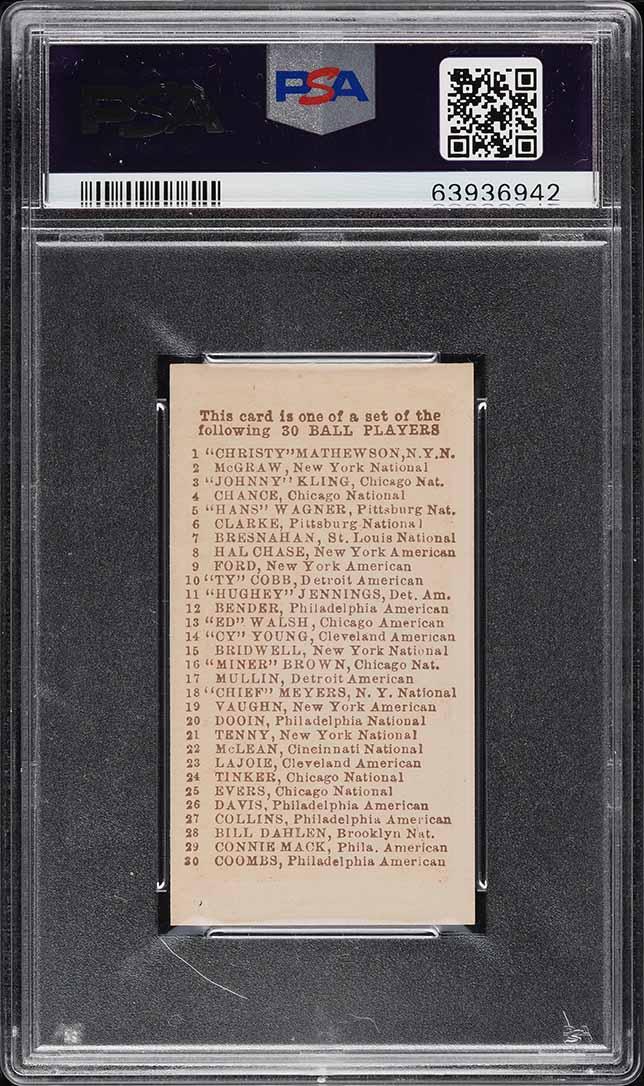 PSA
PSA
63936942
This card is one of a set of the
following 30 BALL PLAYERS
1 "CHRISTY" MATHEWSON, N.Y.N.
2 McGRAW, New York National
3 "JOHNNY" KLING, Chicago Nat.
4 CHANCE, Chicago National
5 "HANS" WAGNER, Pittsburg Nat.
6 CLARKE, Pittsburg National
7 BRESNAHAN, St. Louis National
8 HAL CHASE, New York American
9 FORD, New York American
10 "TY" COBB, Detroit American
11 "HUGHEY" JENNINGS, Det. Am.
12 BENDER, Philadelphia American
13 "ED" WALSH, Chicago American
14 "CY" YOUNG, Cleveland American
15 BRIDWELL, New York National
16 "MINER" BROWN, Chicago Nat.
17 MULLIN, Detroit American
18 "CHIEF" MEYERS, N. Y. National
19 VAUGHN, New York American
20 DOOIN, Philadelphia National
21 TENNY, New York National
22 McLEAN, Cincinnati National
23 LAJOIE, Cleveland American
24 TINKER, Chicago National
25 EVERS, Chicago National
26 DAVIS, Philadelphia American
27 COLLINS, Philadelphia American
28 BILL DAHLEN, Brooklyn Nat.
29 CONNIE MACK, Phila. American
30 COOMBS, Philadelphia American
PSA